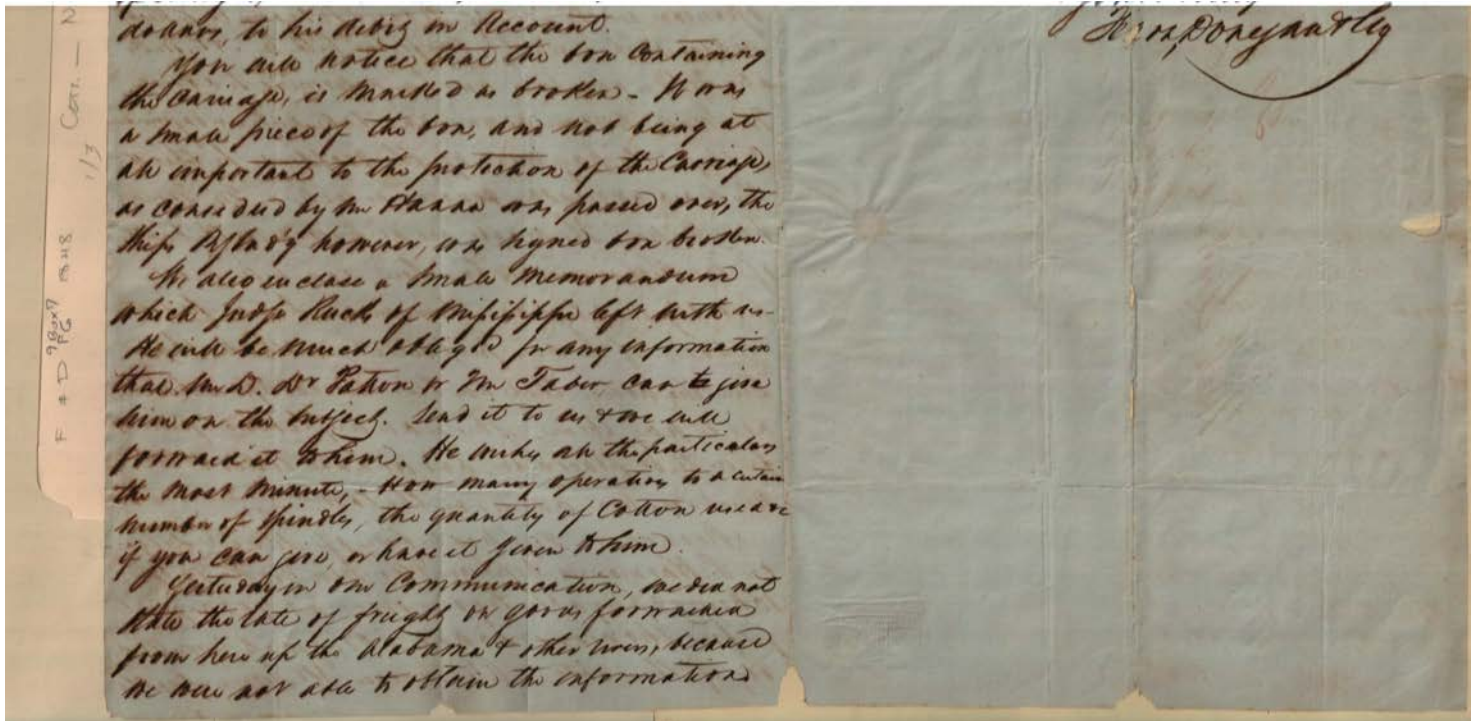 dollars, to his debit in Account.
You will notice that the box containing
the Carriage, is marked as broken - It was
a small piece of the box, and not being at
all important to the protection of the Carriage,
as conceded by Mr Hanna was passed over, the
Ships however, was signed box broken.
We also enclose a small memorandum
which Judge Rucks of Missisippi left with us -
He will be much obliged for any information
that Mr D. Dr Patton or Mr Taber can give
him on the subject. Send it to us & we will
forward it to him. He wishes all the particulars
the most minute, - How many operatives to a certain
number of spindles, the quantity of Cotton used &c
if you can give, or have it given to him.
Yesterday in our Communication, we did not
state the rate of freight on goods forwarded
from here up the Alabama & other rivers, because
we were not able to obtain the information
F & D
Box 7
1848
1/3 Corr. - N